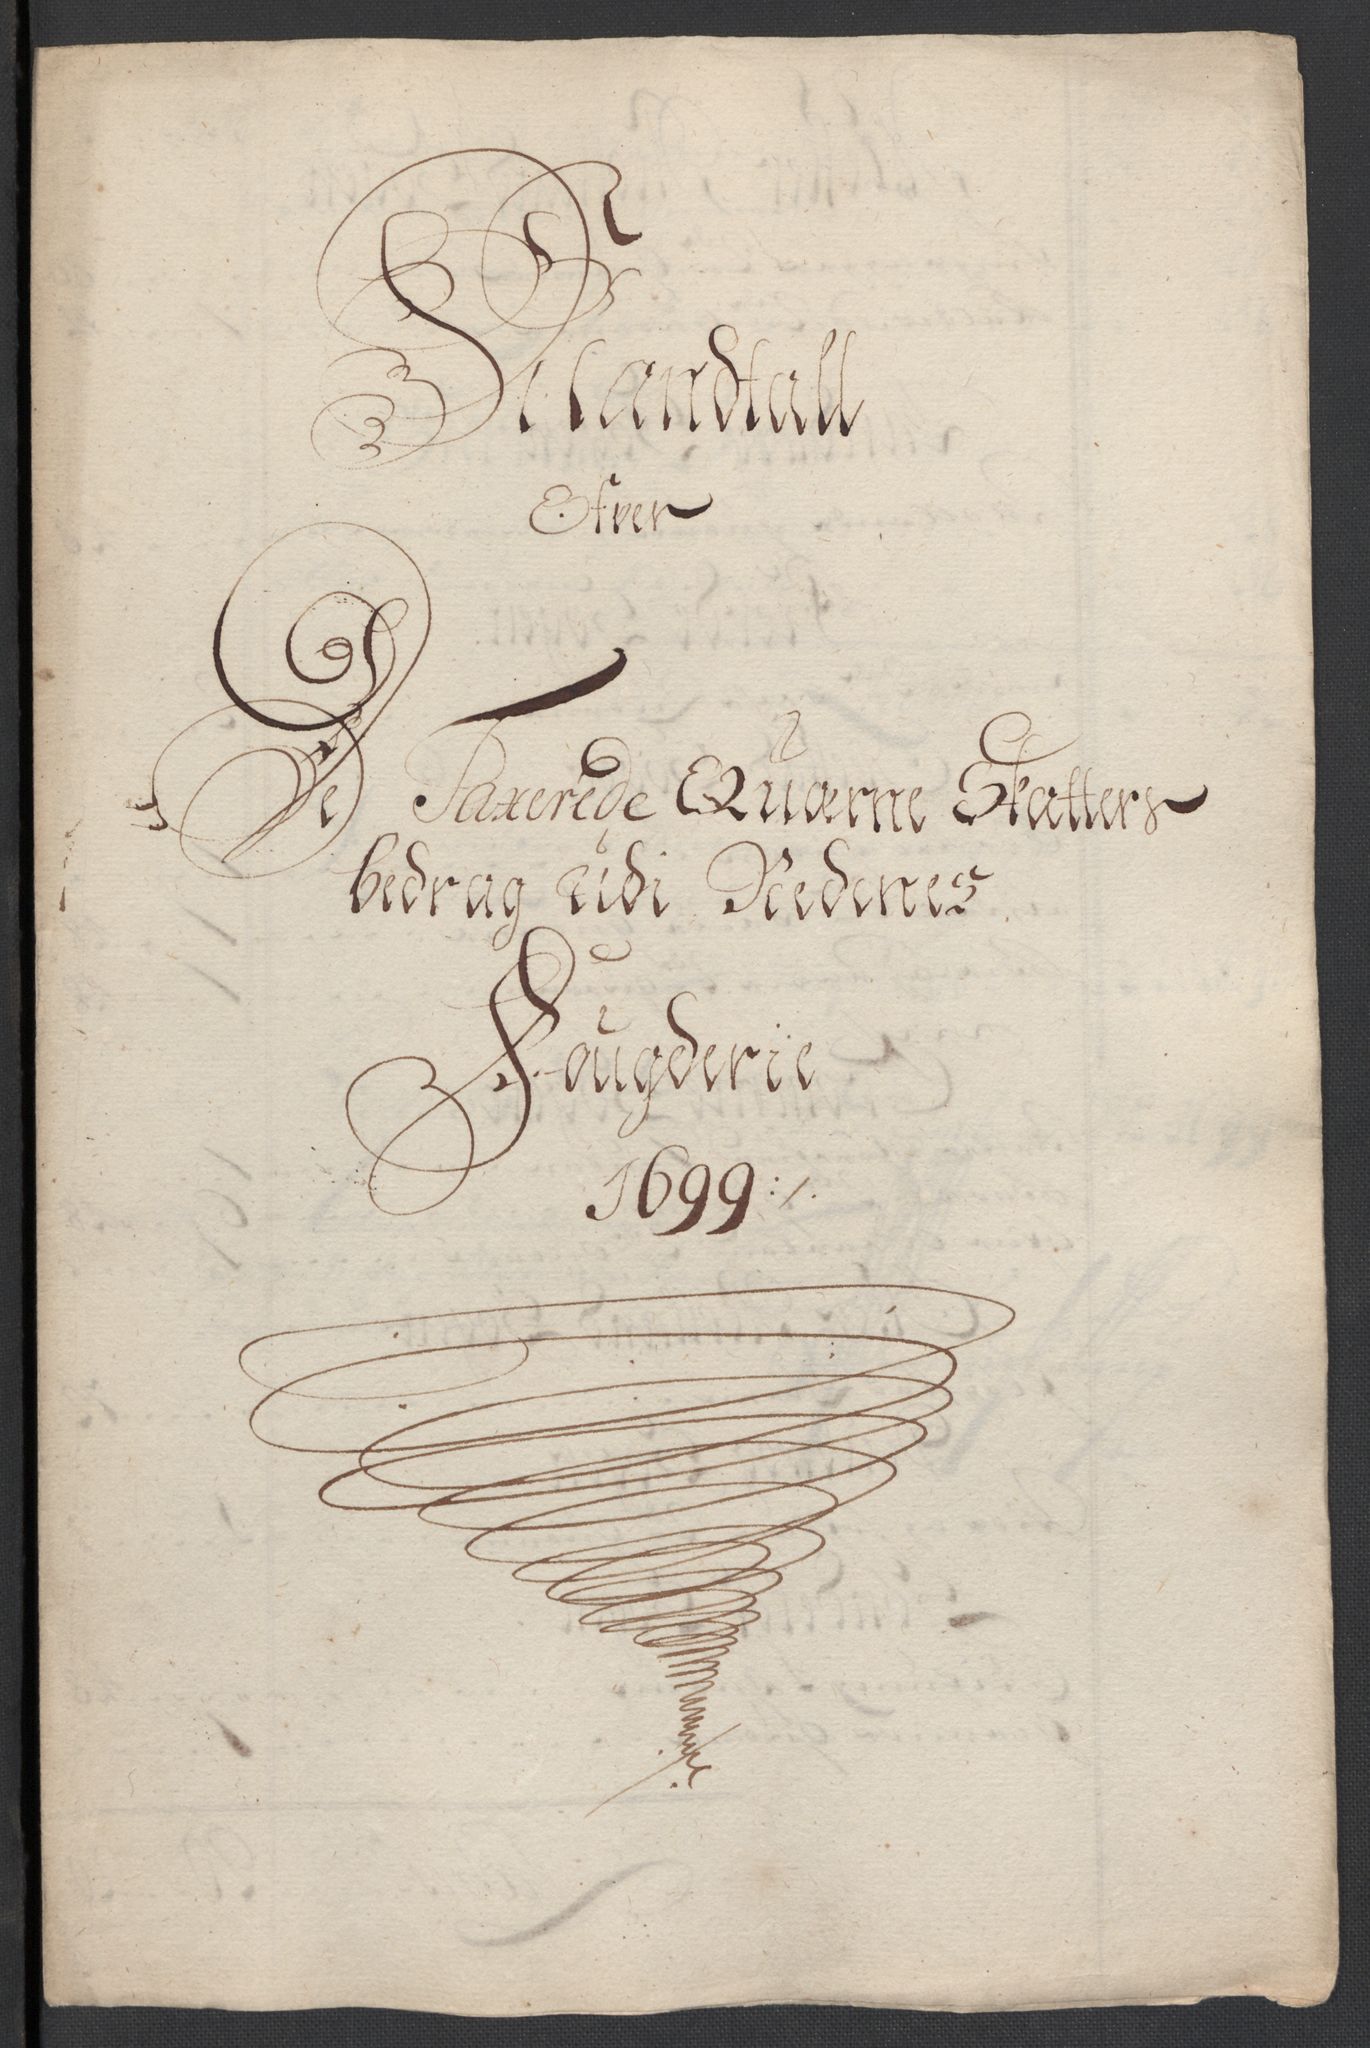 Mandtall
Ofver
De Taxerede Quærne Skatters
bedrag udi Nedenes
Fougderie
1699:/.